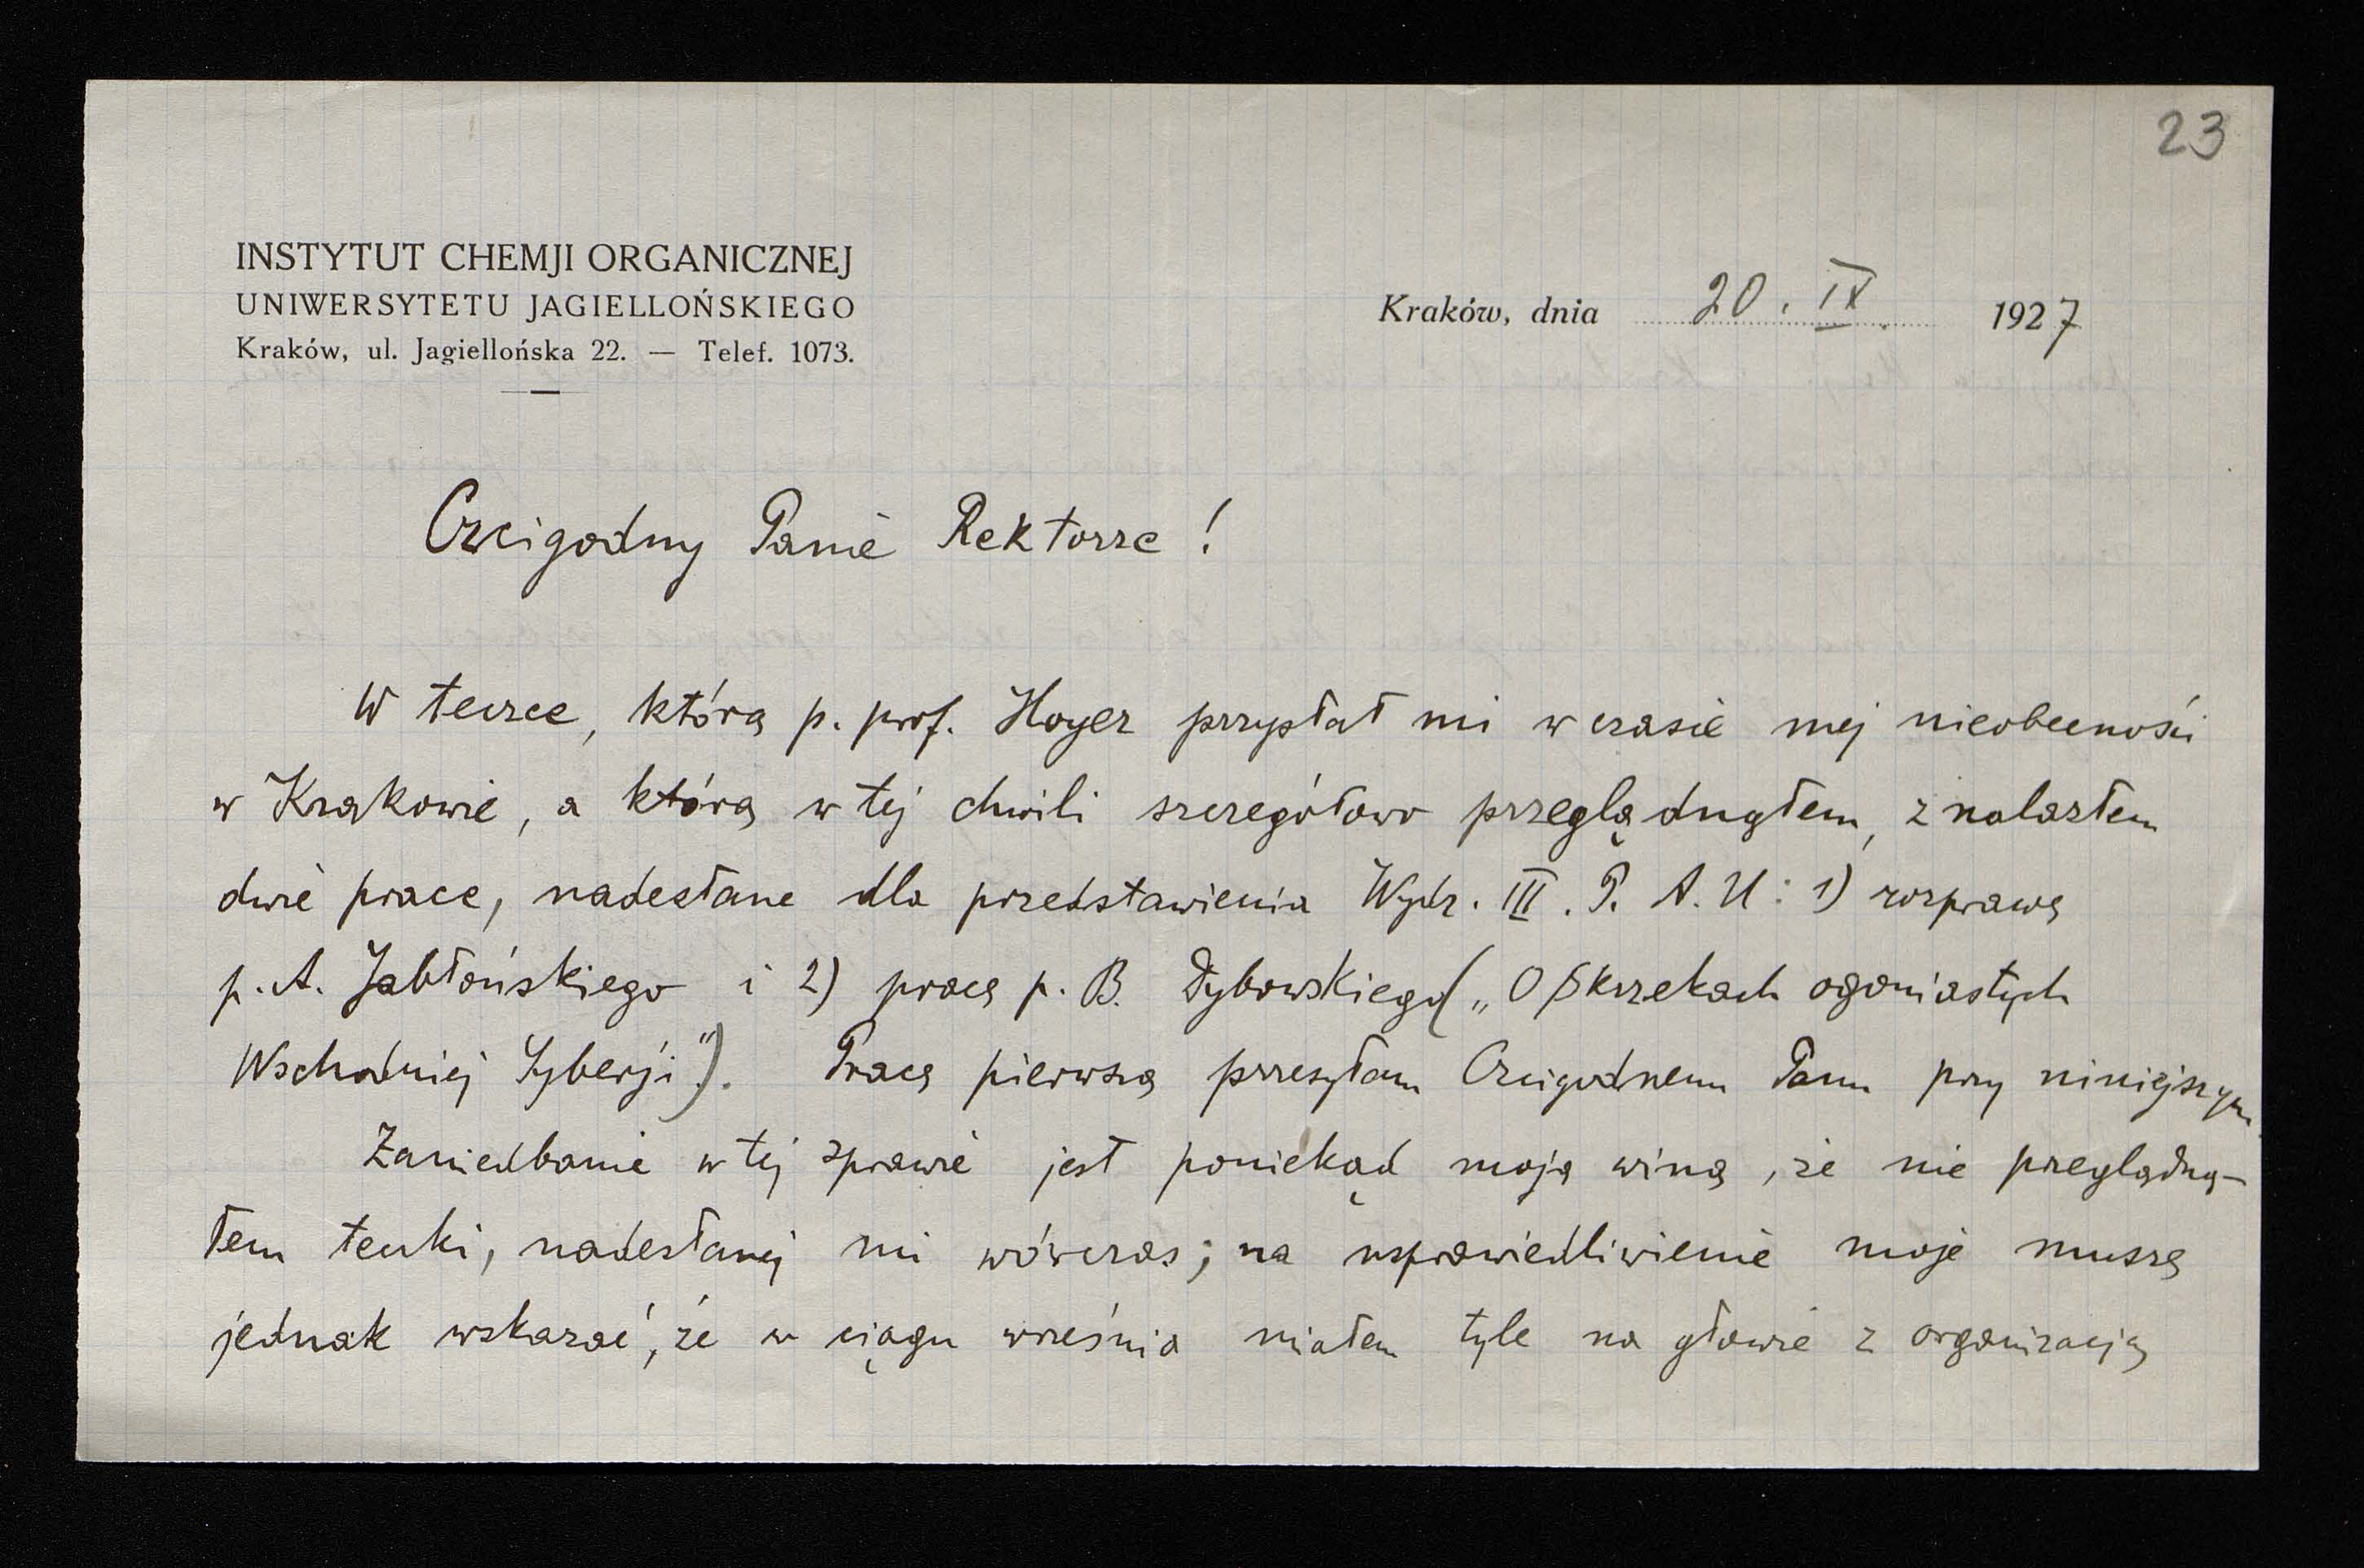 23
INSTYTUT CHEMJI ORGANICZNEJ
UNIWERSYTETU JAGIELLOŃSKIEGO
Kraków, ul. Jagiellońska 22. — Telef. 1073.
Kraków, dnia 20. IX. 1927
Czcigodny Panie Rektorze!
W teczce, którą p. prof. Hoyer przysłał mi w czasie mej nieobecności
w Krakowie, a którą w tej chwili szczegółowo przeglądnąłem, znalazłem
dwie prace, nadesłane dla przedstawienia Wydz. III. P. A. U: 1) rozprawę
p. A. Jabłońskiego i 2) pracę p. B. Dybowskiego („O skrzekach ogoniastych
Wschodniej Syberji"). Pracę pierwszą przesyłam Czcigodnemu Panu przy niniejszym.
Zaniedbanie w tej sprawie jest poniekąd moją winą, że nie przeglądną-
łem teczki, nadesłanej mi wówczas; na usprawiedliwienie moje muszę
jednak wskazać, że w ciągu września miałem tyle na głowie z organizacją